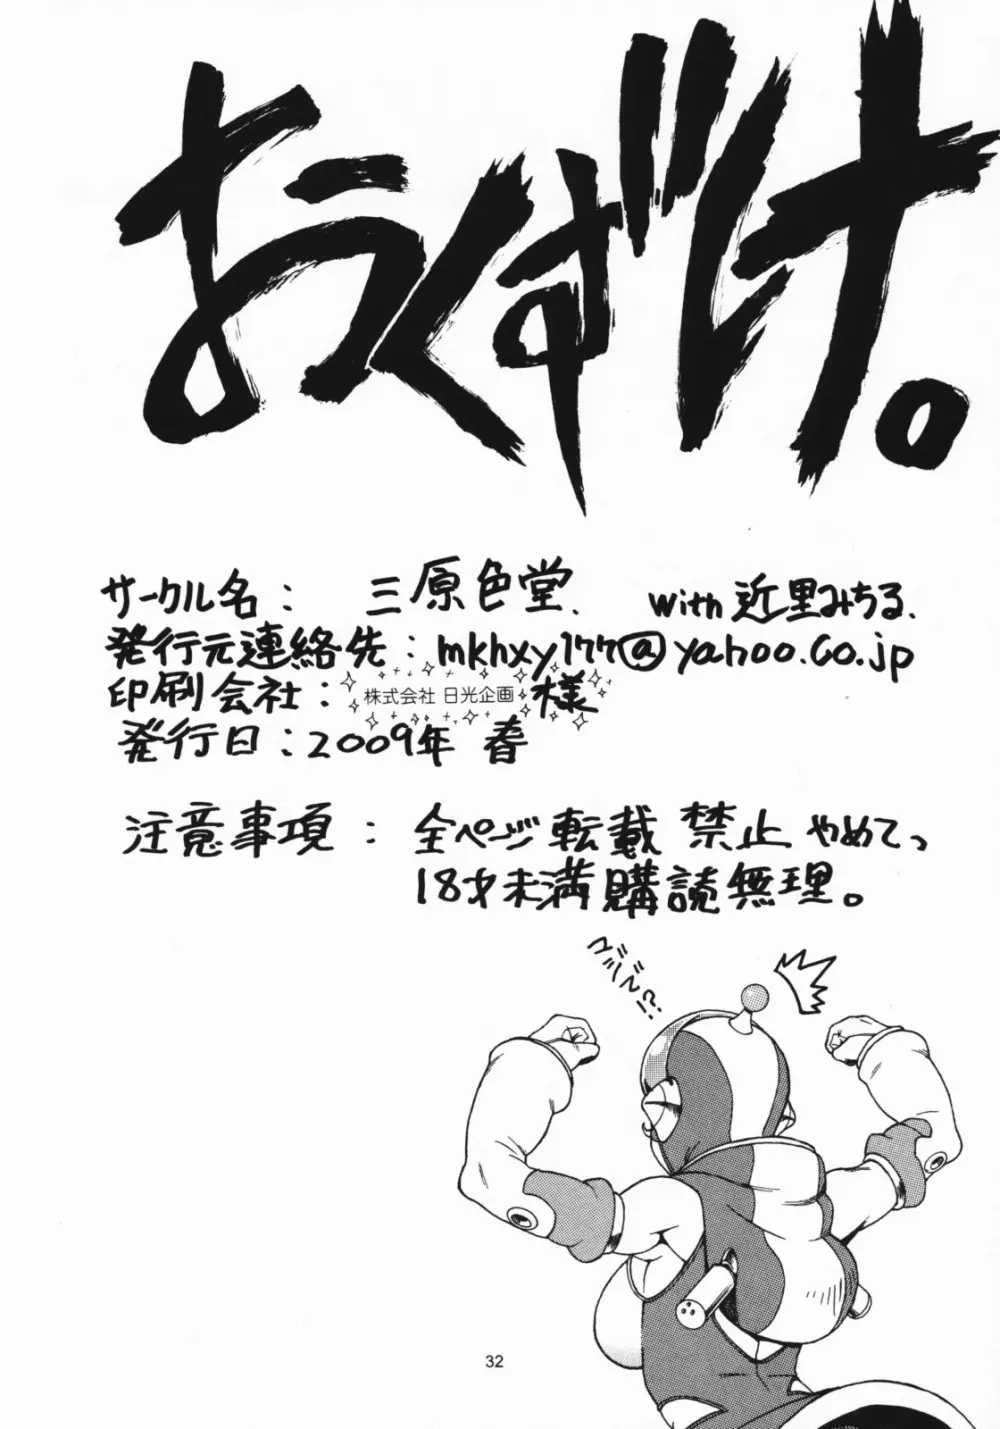 おくずけ。
サークル名： 三原色堂． with 近里みちる．
発行元連絡先：mkhxy177@yahoo.co.jp
印刷会社：株式会社 日光企画 様
発行日：2009年 春
注意事項： 全ページ転載 禁止 やめてっ
18才未満購読無理。
32